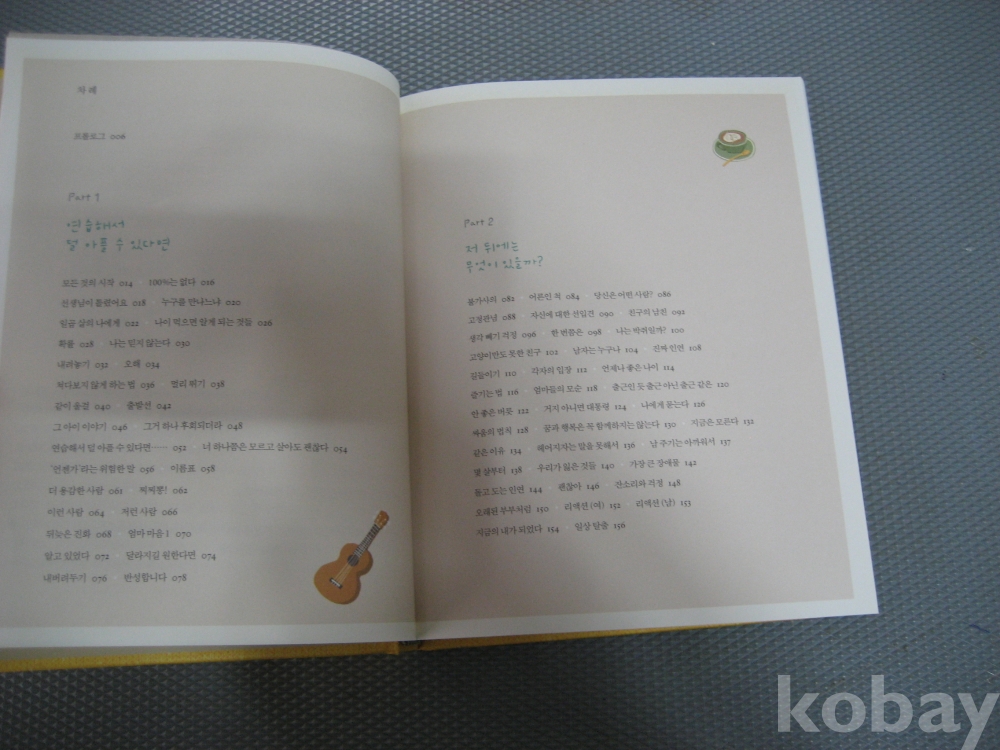 차례
프롤로그 006
Part 1
연습해서
덜 아플 수 있다면
모든 것의 시작 014 · 100%는 없다 016
선생님이 틀렸어요 018 · 누구를 만나느냐 020
일곱 살의 나에게 022 · 나이 먹으면 알게 되는 것들 026
확률 028 · 나는 믿지 않는다 030
내려놓기 032 · 오해 034
쳐다보지 않게 하는 법 036 · 멀리 뛰기 038
같이 울걸 040 · 출발선 042
그 아이 이야기 046 · 그거 하나 후회되더라 048
연습해서 덜 아플 수 있다면 052 · 너 하나쯤은 모르고 살아도 괜찮다 054
'언젠가'라는 위험한 말 056 · 이름표 058
더 용감한 사람 061 · 찌찌뽕! 062
이런 사람 064 · 저런 사람 066
뒤늦은 전화 068 · 엄마 마음 1 070
알고 있었다 072 · 달라지길 원한다면 074
내버려두기 076 · 반성합니다 078
Part 2
저 위에는
무엇이 있을까?
불가사의 082 · 어른인 척 084 · 당신은 어떤 사람? 086
고정관념 088 · 자신에 대한 선입견 090 · 친구의 남친 092
생각 빼기 걱정 096 · 한 번쯤은 098 · 나는 박쥐일까? 100
고양이만도 못한 친구 102 · 남자는 누구나 104 · 진짜 인연 108
길들이기 110 · 각자의 입장 112 · 언제나 좋은 나이 114
즐기는 법 116 · 엄마들의 모순 118 · 출근인 듯 출근 아닌 출근 같은 120
안 좋은 버릇 122 · 거지 아니면 대통령 124 · 나에게 묻는다 126
싸움의 법칙 128 · 꿈과 행복은 꼭 함께하지는 않는다 130 · 지금은 모른다 132
같은 이유 134 · 헤어지자는 말을 못해서 136 · 남 주기는 아까워서 137
몇 살부터 138 · 우리가 잃은 것들 140 · 가장 큰 장애물 142
돌고 도는 인연 144 · 괜찮아 146 · 잔소리와 걱정 148
오래된 부부처럼 150 · 리액션 (여) 152 · 리액션 (남) 153
지금의 내가 되었다 154 · 일상 탈출 156
kobay